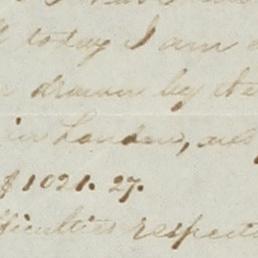 today I am
drawn by the
in London, and
$1021.27.
difficulties respecti